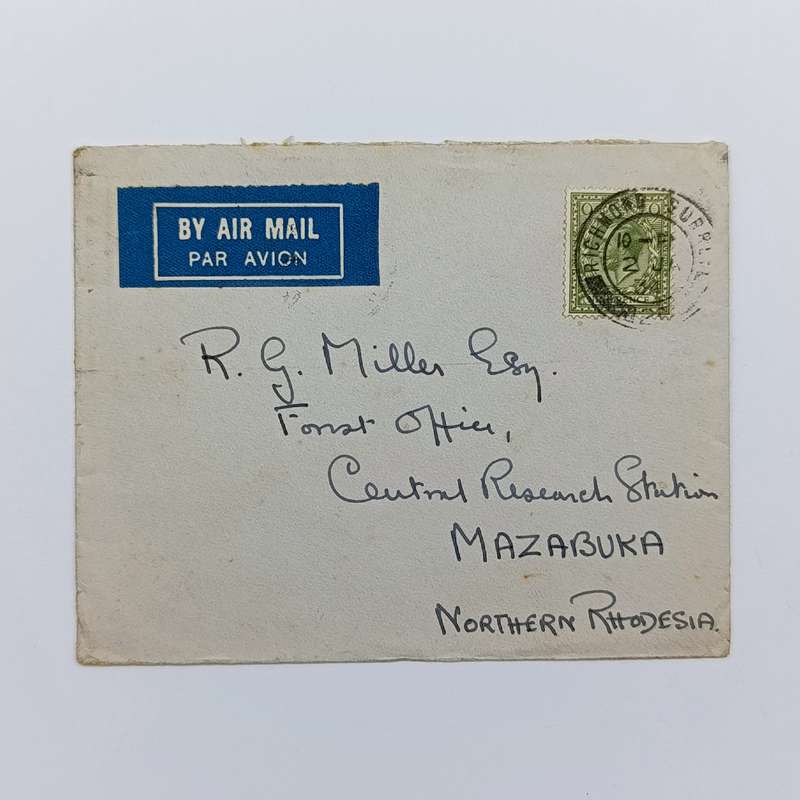 BY AIR MAIL
PAR AVION
RICHMOND SURREY
10
2
R. G. Miller Esq.
Forest Office,
Central Research Station
MAZABUKA
NORTHERN RHODESIA.